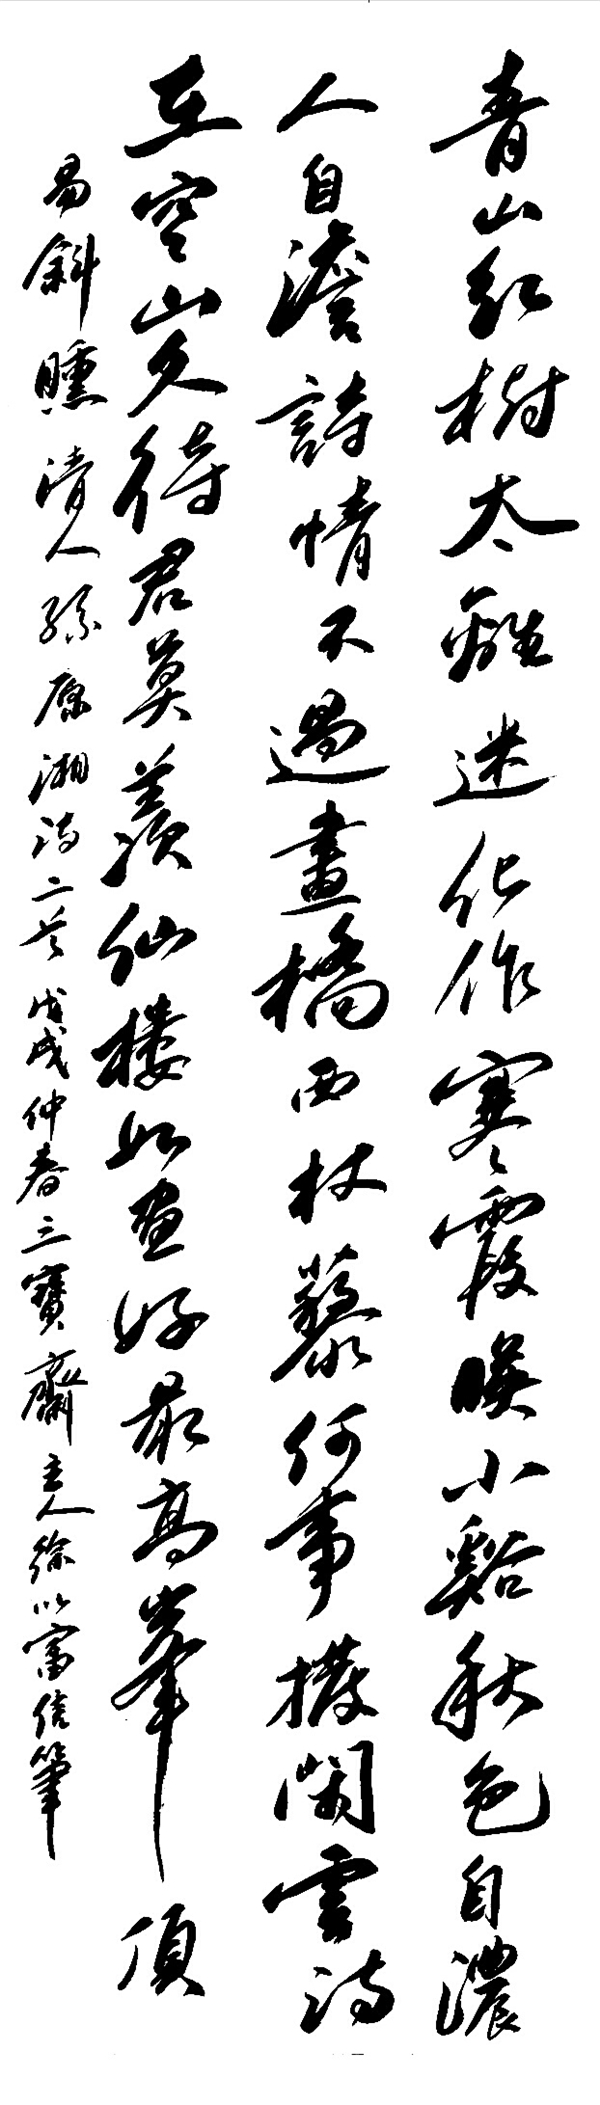 青山紅樹太離迷化作寒霞暎小谿秋色自濃
人自澹詩情不過畫橋西杖藜何事撥閑雲詩
在空山久待君莫羨仙樓如畫好最高峯頂
易斜曛清人孫原湘詩二首戊戌仲春三寶齋主人徐以富信筆